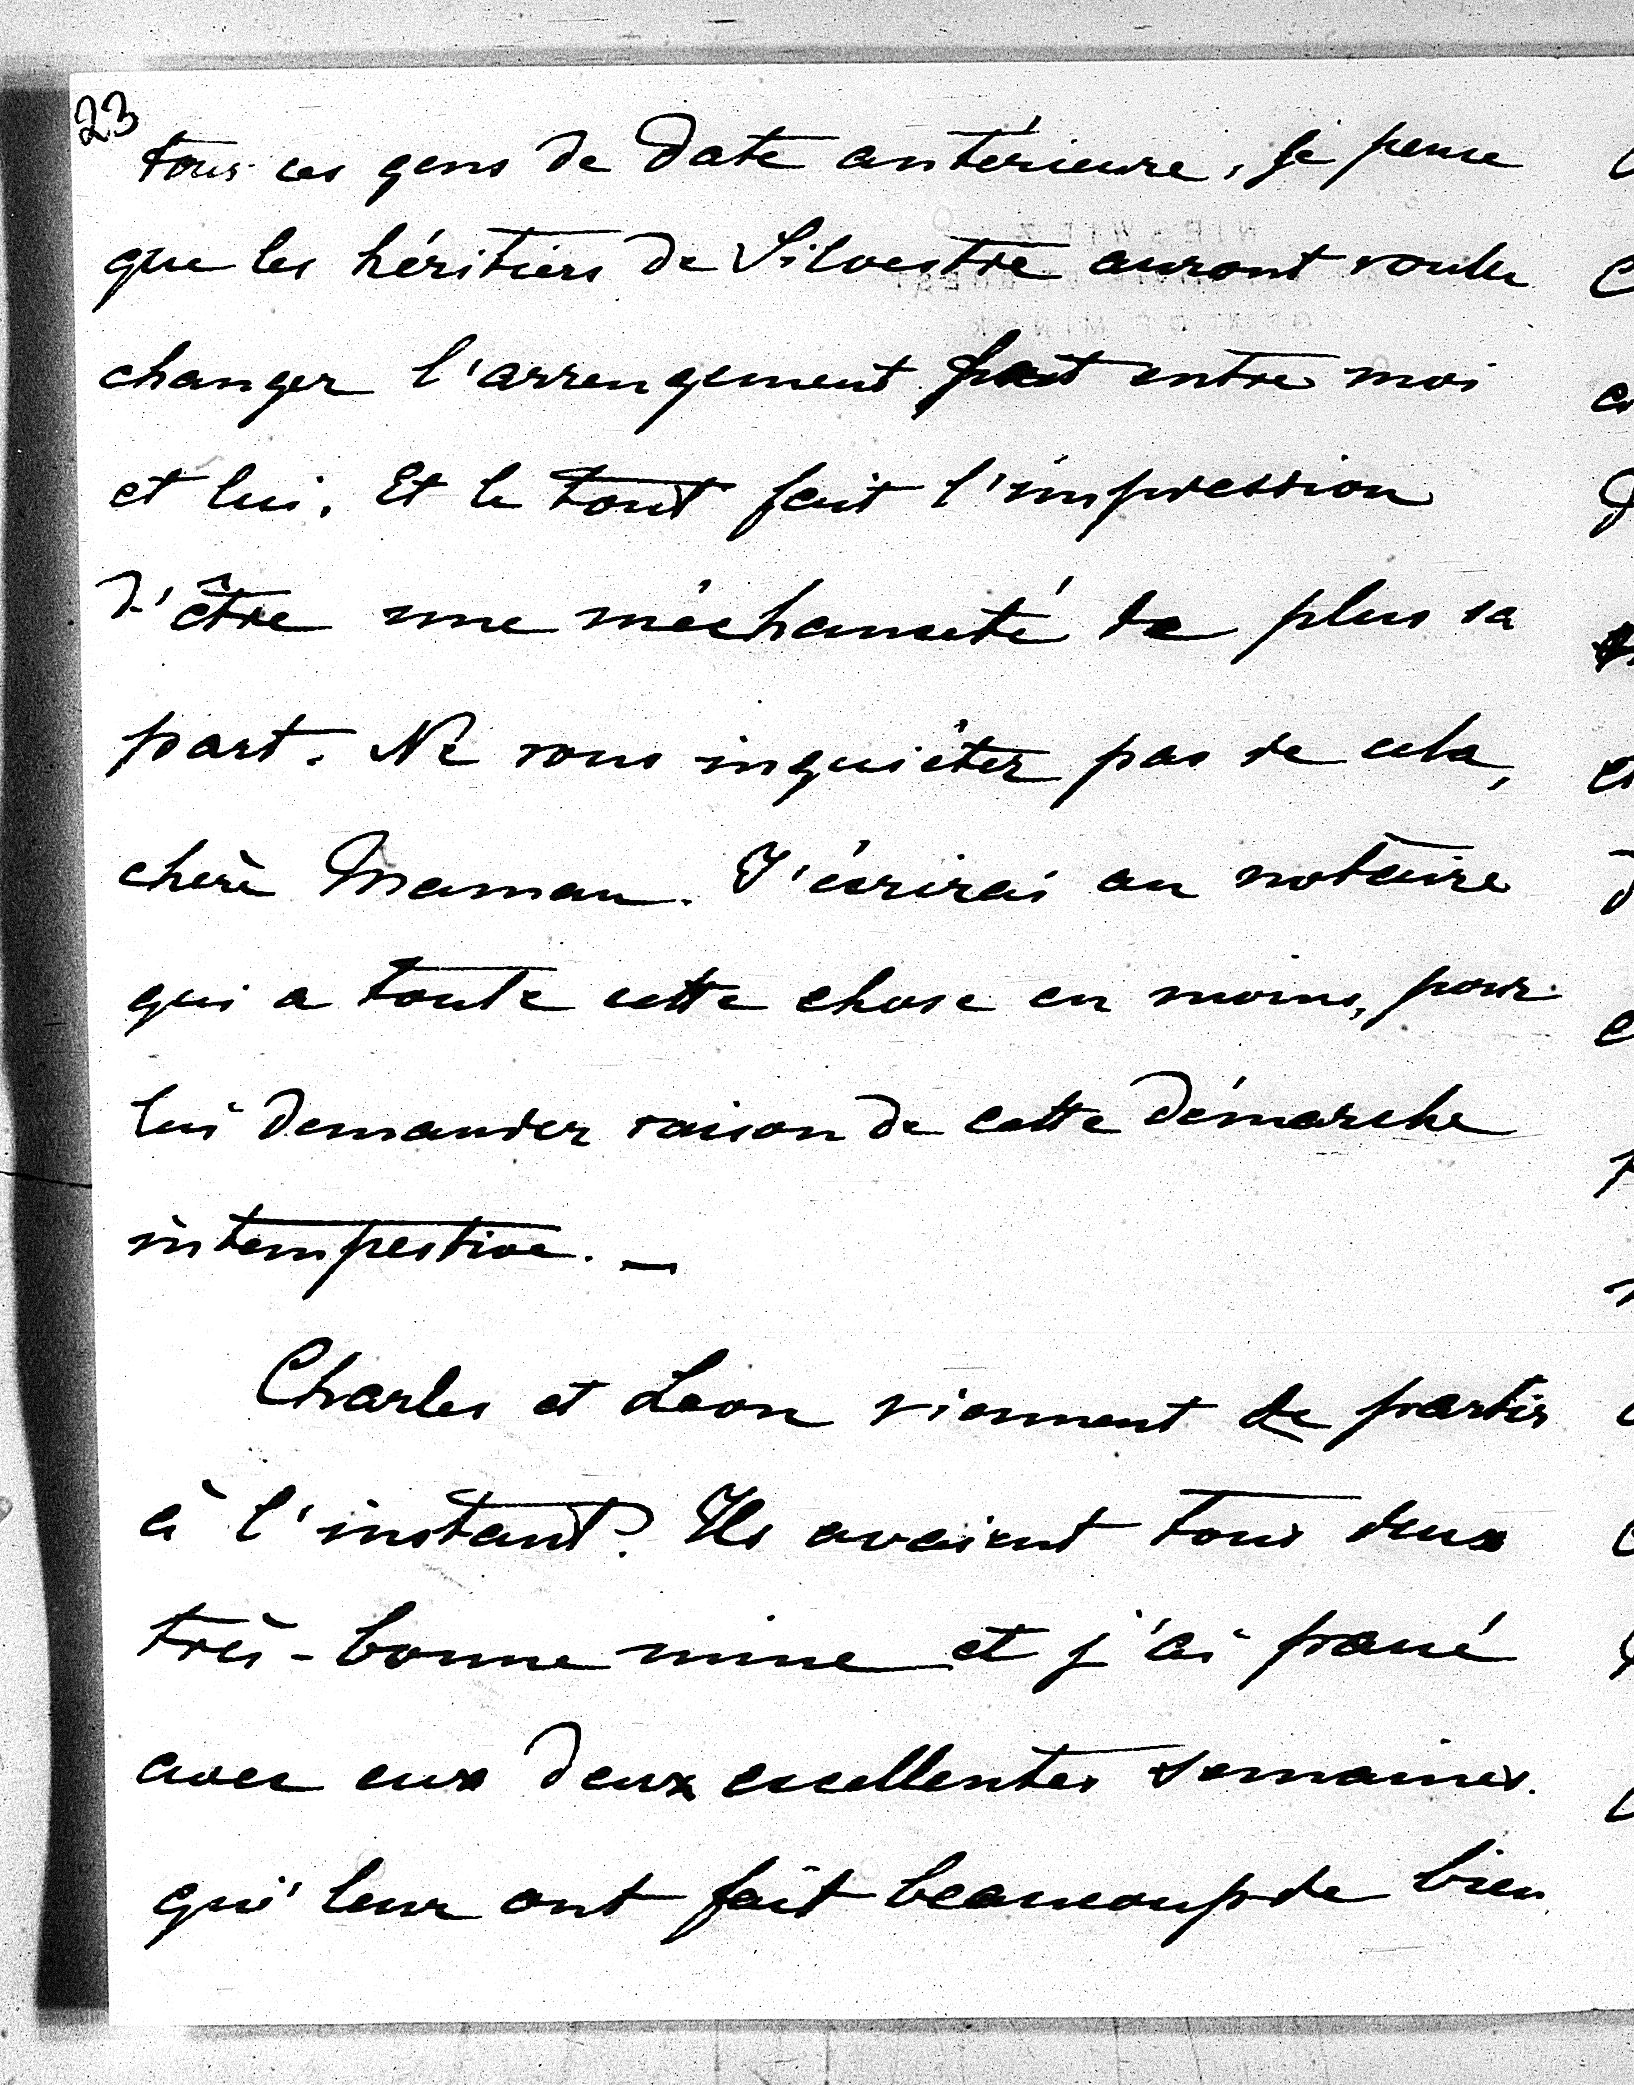 23
tous ces gens de date antérieure, je pense
que les héritiers de Silvestre auront voulu
changer l'arrengement fait entre moi
et lui. Et le tout fait l'impression
d'être une méchanceté de plus sa
part. Ne vous inquiéter pas de cela,
chère Maman. J'écrirai au notaire
qui a toute cette chose en moins, pour
lui demander raison de cette démarche
intempestive. —
Charles et Leon viennent de partir
à l'instant? Ils avaient tous deux
très-bonne mine et j'ai passé
avec eux deux excellentes semaines.
qui leur ont fait beaucoup de bien.